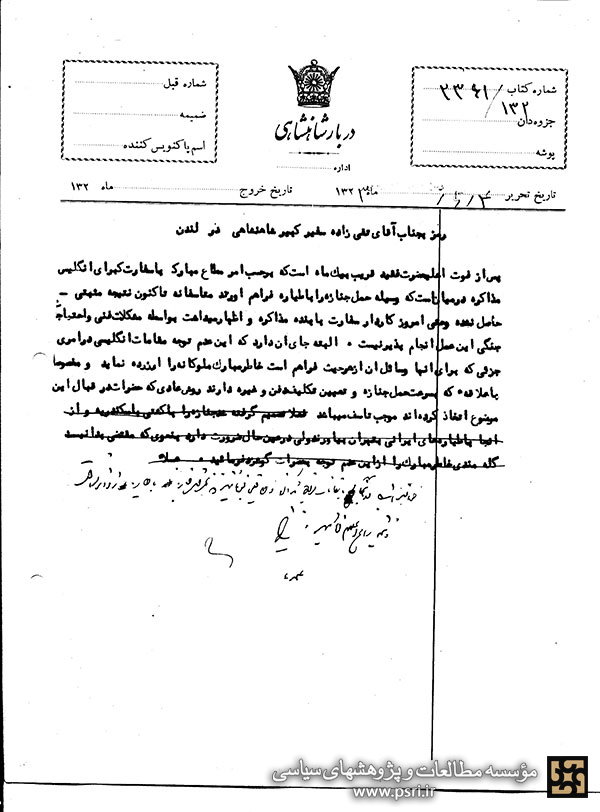 شماره کتاب ۲۳۶۱/۱۳۲
جزوه‌دان
پوشه
دربار شاهنشاهی
اداره
شماره قبل
ضمیمه
اسم پاکنویس کننده
تاریخ تحریر ماه ۱۳۲۳
تاریخ خروج ماه ۱۳۲
رمز بجناب آقای تقی زاده سفیر کبیر شاهنشاهی در لندن
پس از فوت اعلیحضرت فقید قریب بیکماه است که برحسب امر مطاع مبارک با سفارت کبرای انگلیس
مذاکره درمیان است که وسیله حمل جنازه را با طیاره فراهم آورند متاسفانه تاکنون نتیجه مثبتی
حاصل نشده وحتی امروز کاردار سفارت با بنده مذاکره و اظهار میداشت بواسطه مشکلات فنی و احتیاجات
جنگی این عمل انجام پذیر نیست ۰ البته جای آن دارد که این عدم توجه مقامات انگلیسی در امری
جزئی که برای آنها وسائل آن از هر حیث فراهم است خاطر مبارک ملوکانه را آزرده نماید و مخصوصا
با علاقه‌ء که بسرعت حمل جنازه و تعیین تکلیف دفن و غیره دارند روش عادی که حضرات در قبال این
موضوع اتخاذ کرده‌اند موجب تاسف میباشد فعلا تصمیم گرفته شده جنازه را با کشتی باسکندریه و از
آنجا با طیاره‌های ایرانی بتهران بیاورند ولی در عین حال ضرورت دارد بنحوی که مقتضی بدانید
گله مندی خاطر مبارک را از این عدم توجه بحضرات گوشزد فرمائید ۰
مؤسسه مطالعات و پژوهشهای سیاسی
www.psri.ir